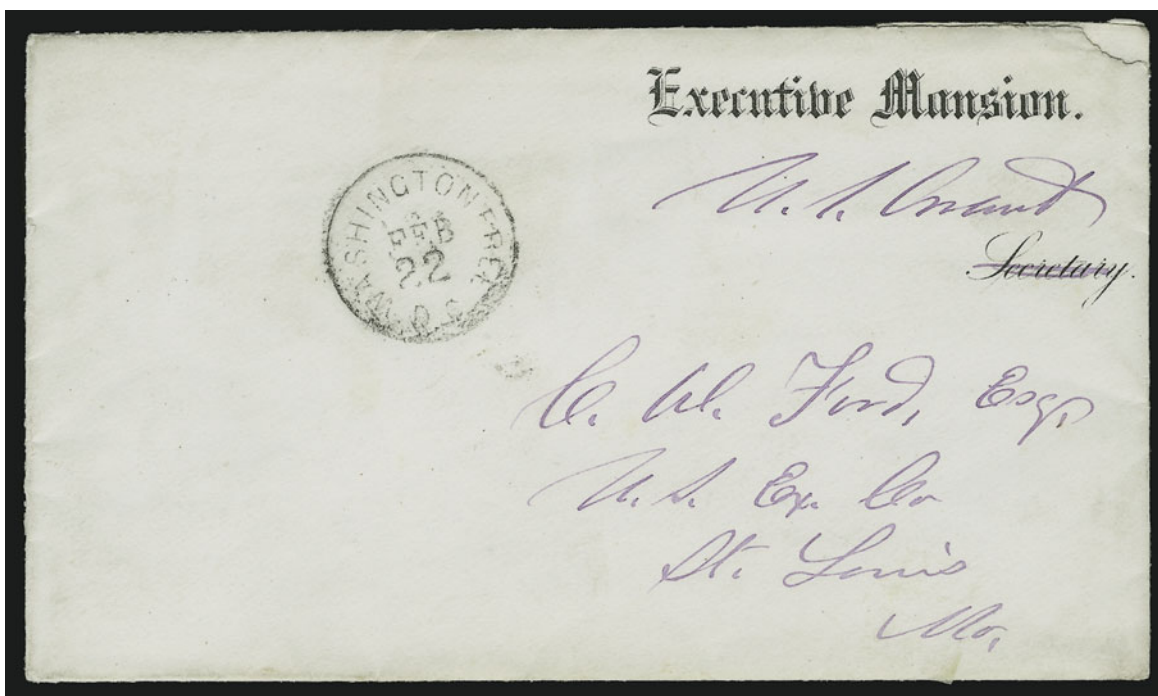 Executive Mansion.
U. S. Grant
Secretary.
WASHINGTON FREE
FEB
22
D.C.
C. W. Ford, Esq.
U. S. Ex. Co
St. Louis
Mo.